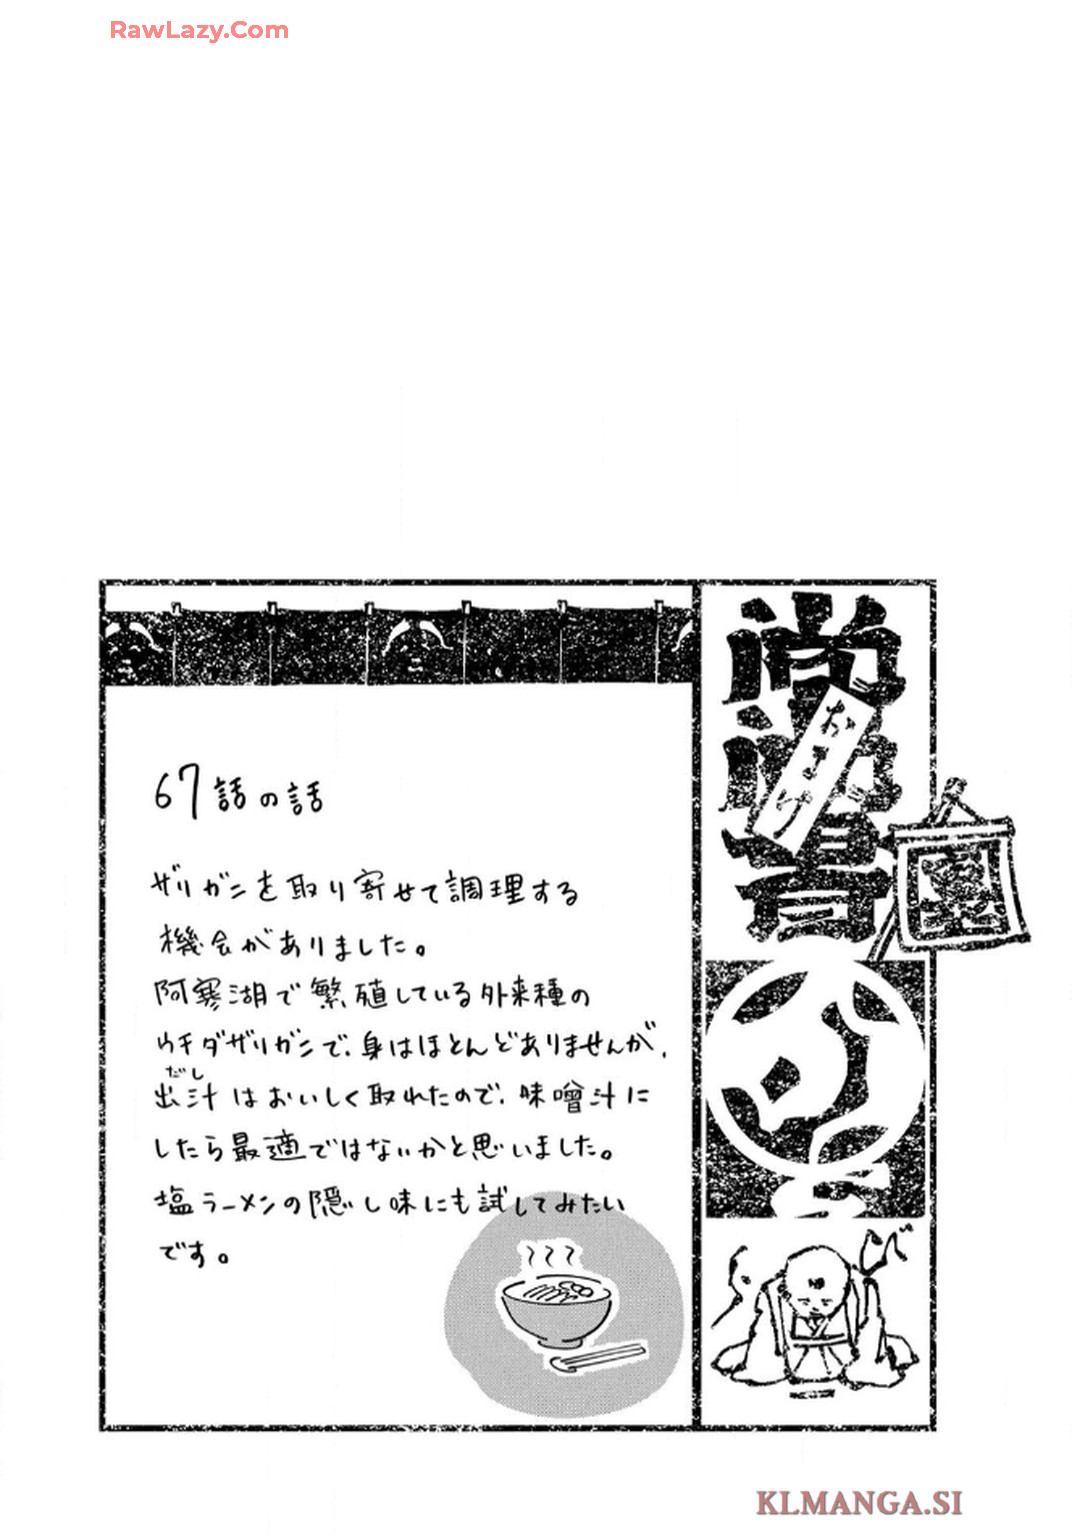 RawLazy.Com
67話の話
ザリガニを取り寄せて調理する
機会がありました。
阿寒湖で繁殖している外来種の
ウチダザリガニで、身はほとんどありませんが、
だし
出汁はおいしく取れたので、味噌汁に
したら最適ではないかと思いました。
塩ラーメンの隠し味にも試してみたい
です。
おまけ
KLMANGA.SI